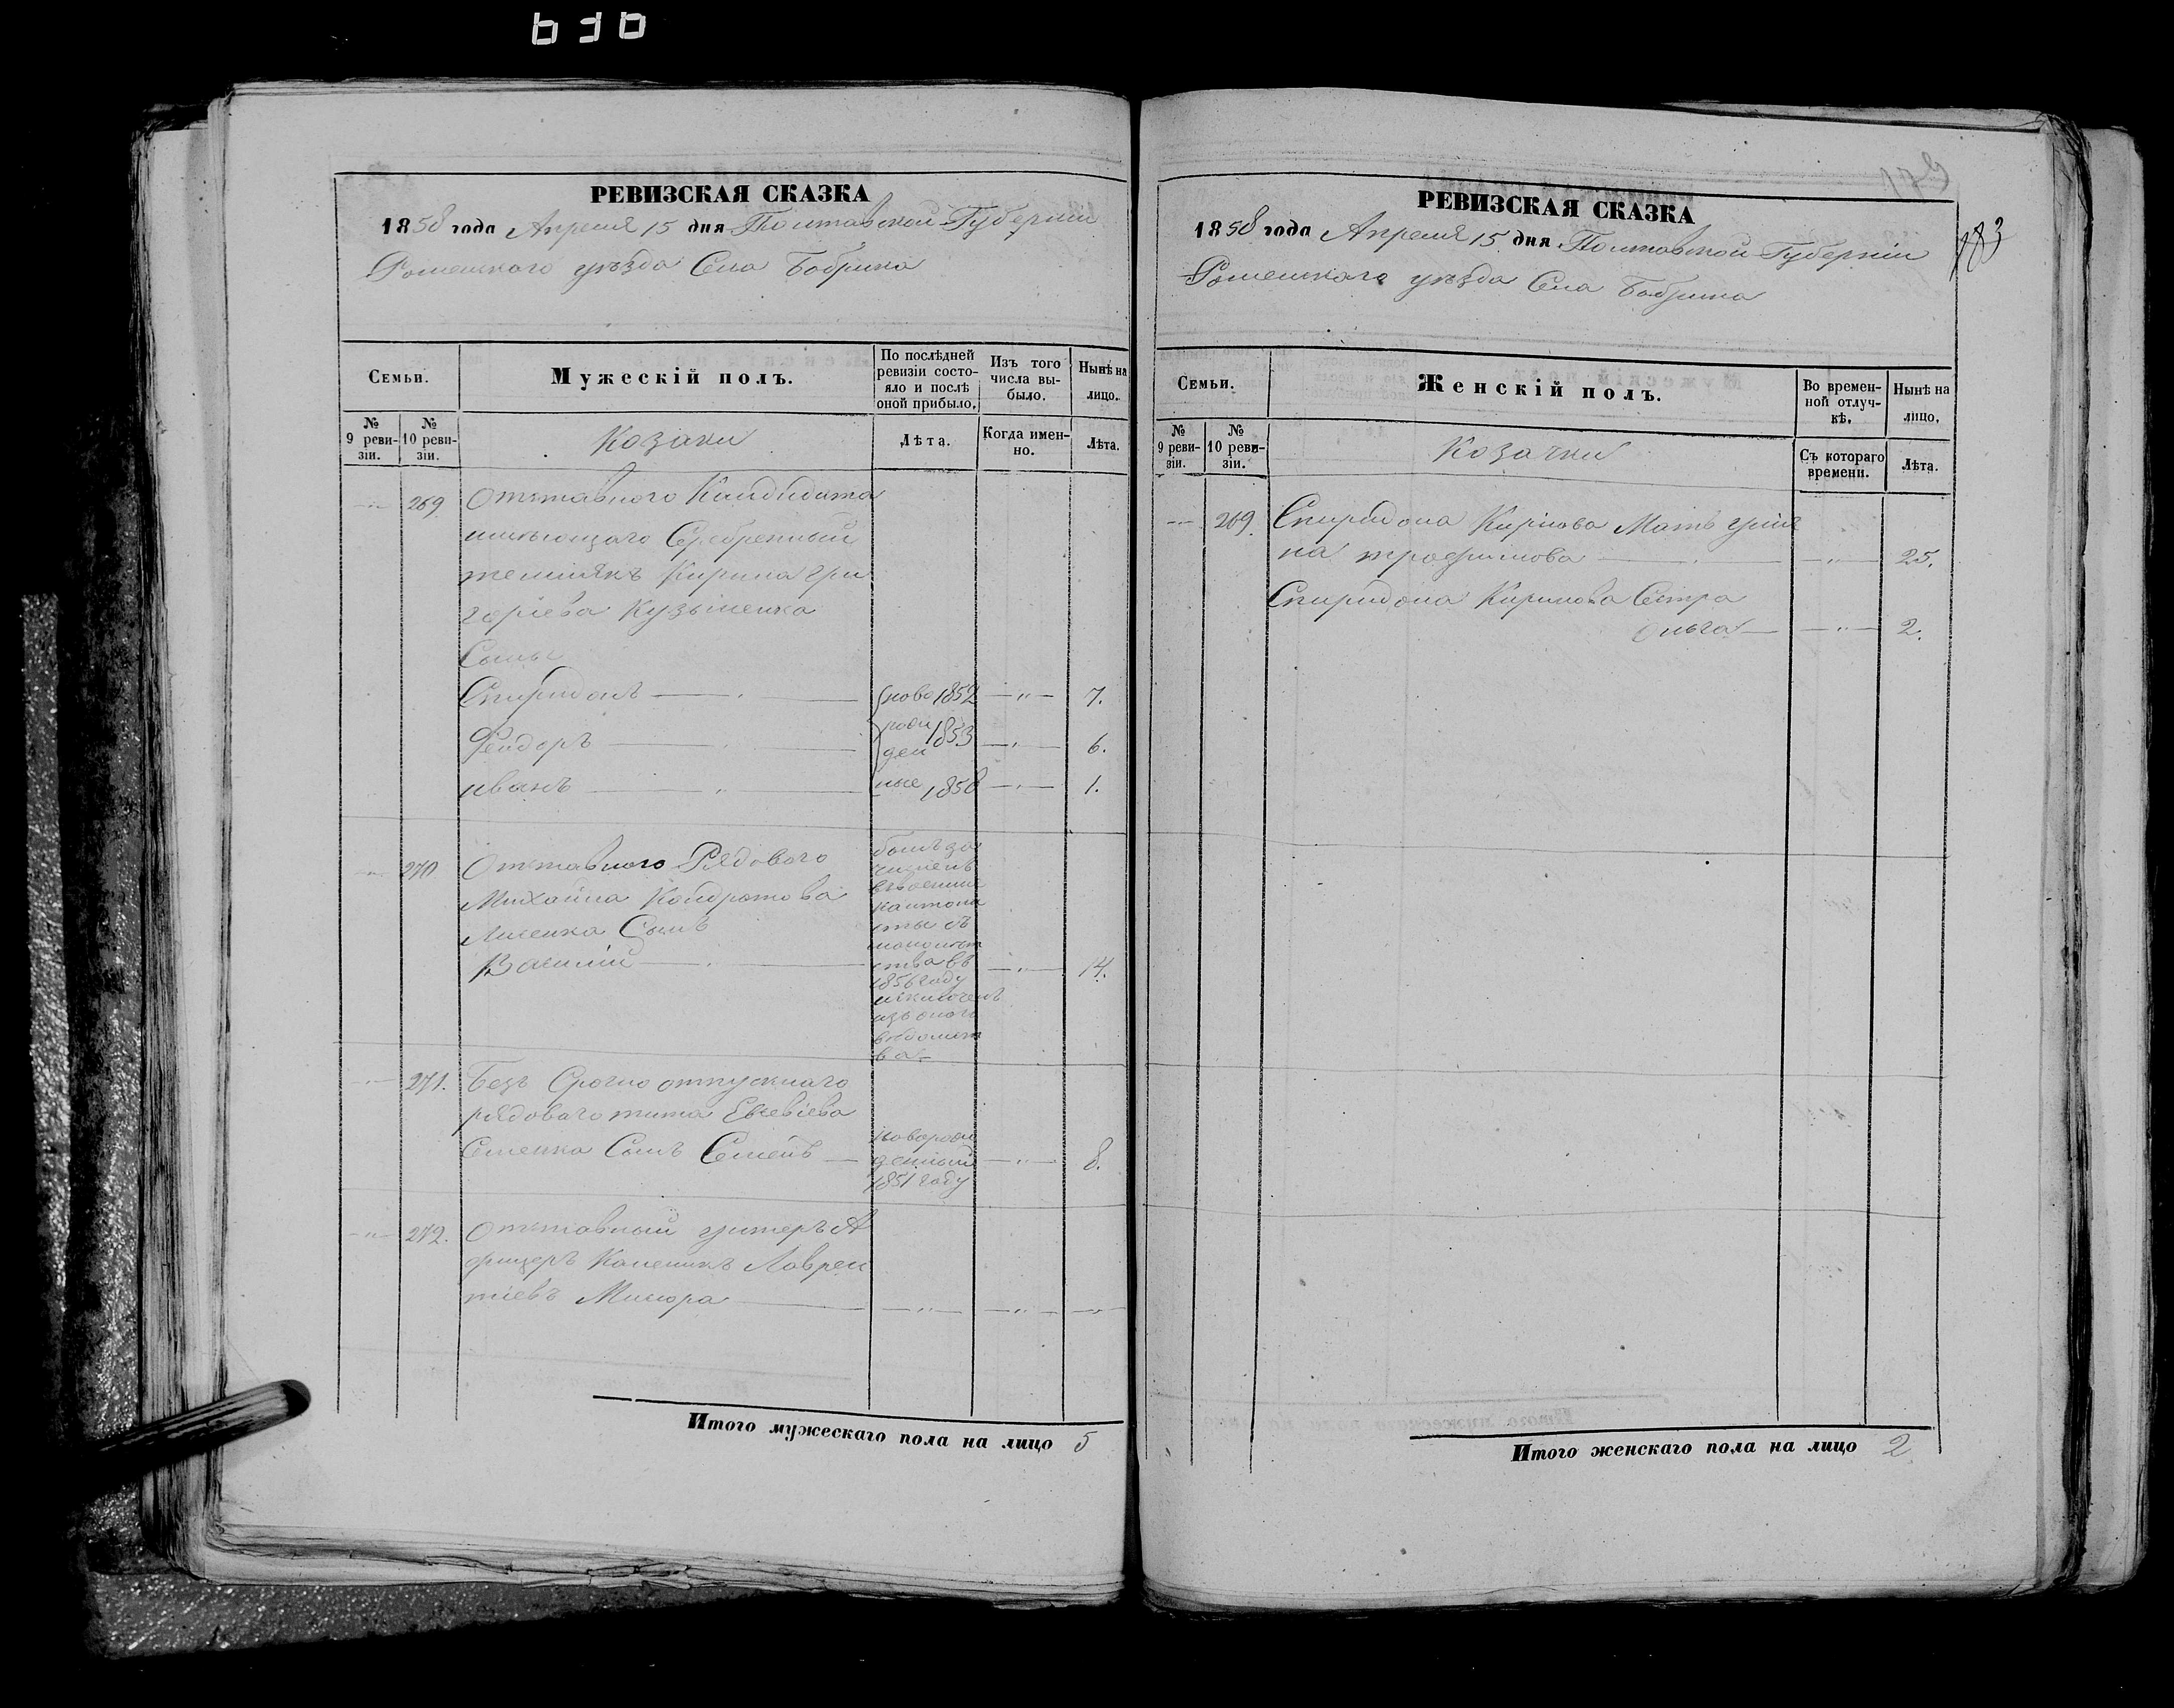 636
РЕВИЗСКАЯ СКАЗКА
1858 года Апреля 15 дня Полтавской Губерніи
Роменского уѣзда Села Бобрика
Семьи.
Мужескій полъ.
По послѣдней ревизіи состояло и послѣ оной прибыло.
Изъ того числа выбыло.
Нынѣ на лицо.
№ 9 ревизіи.
№ 10 ревизіи.
Козаки
Лѣта.
Когда именно.
Лѣта.
269 Отставного Кандидата
имѣющаго Серебренный
темлякъ Кирила Гри
горіева Кузьменка
Сыны
Спиридонъ ново 1852 7.
Феодоръ рож ден 1853 6.
иванъ ные 1858 1.
270 Отставного Рядового
Михайла Кондратова
Лисенка Сынъ
Василій 14.
былъ за
численъ
въ военные
кантони
сты съ
малолѣт
ства въ
1856 году
изключенъ
изъ оного
вѣдомст
ва
271. Безъ Срочно отпускнаго
рядоваго тита Евсевіева
Сененка Сынъ Семенъ 8.
новорож
денный
1851 году
272. Отставный унтеръ А
фицеръ Каленикъ Лаврен
тіевъ Мисюра
Итого мужескаго пола на лицо 5
171
183
РЕВИЗСКАЯ СКАЗКА
1858 года Апреля 15 дня Полтавской Губерніи
Роменскаго уѣзда Села Бобрика
Семьи.
Женскій полъ.
Во временной отлучкѣ.
Нынѣ на лицо.
№ 9 ревизіи.
№ 10 ревизіи.
Козачки
Съ котораго времени.
Лѣта.
269. Спиридона Кирилова Мать улія
на трофимова 25.
Спиридона Кирилова Сестра
Ольга 2.
Итого женскаго пола на лицо 2